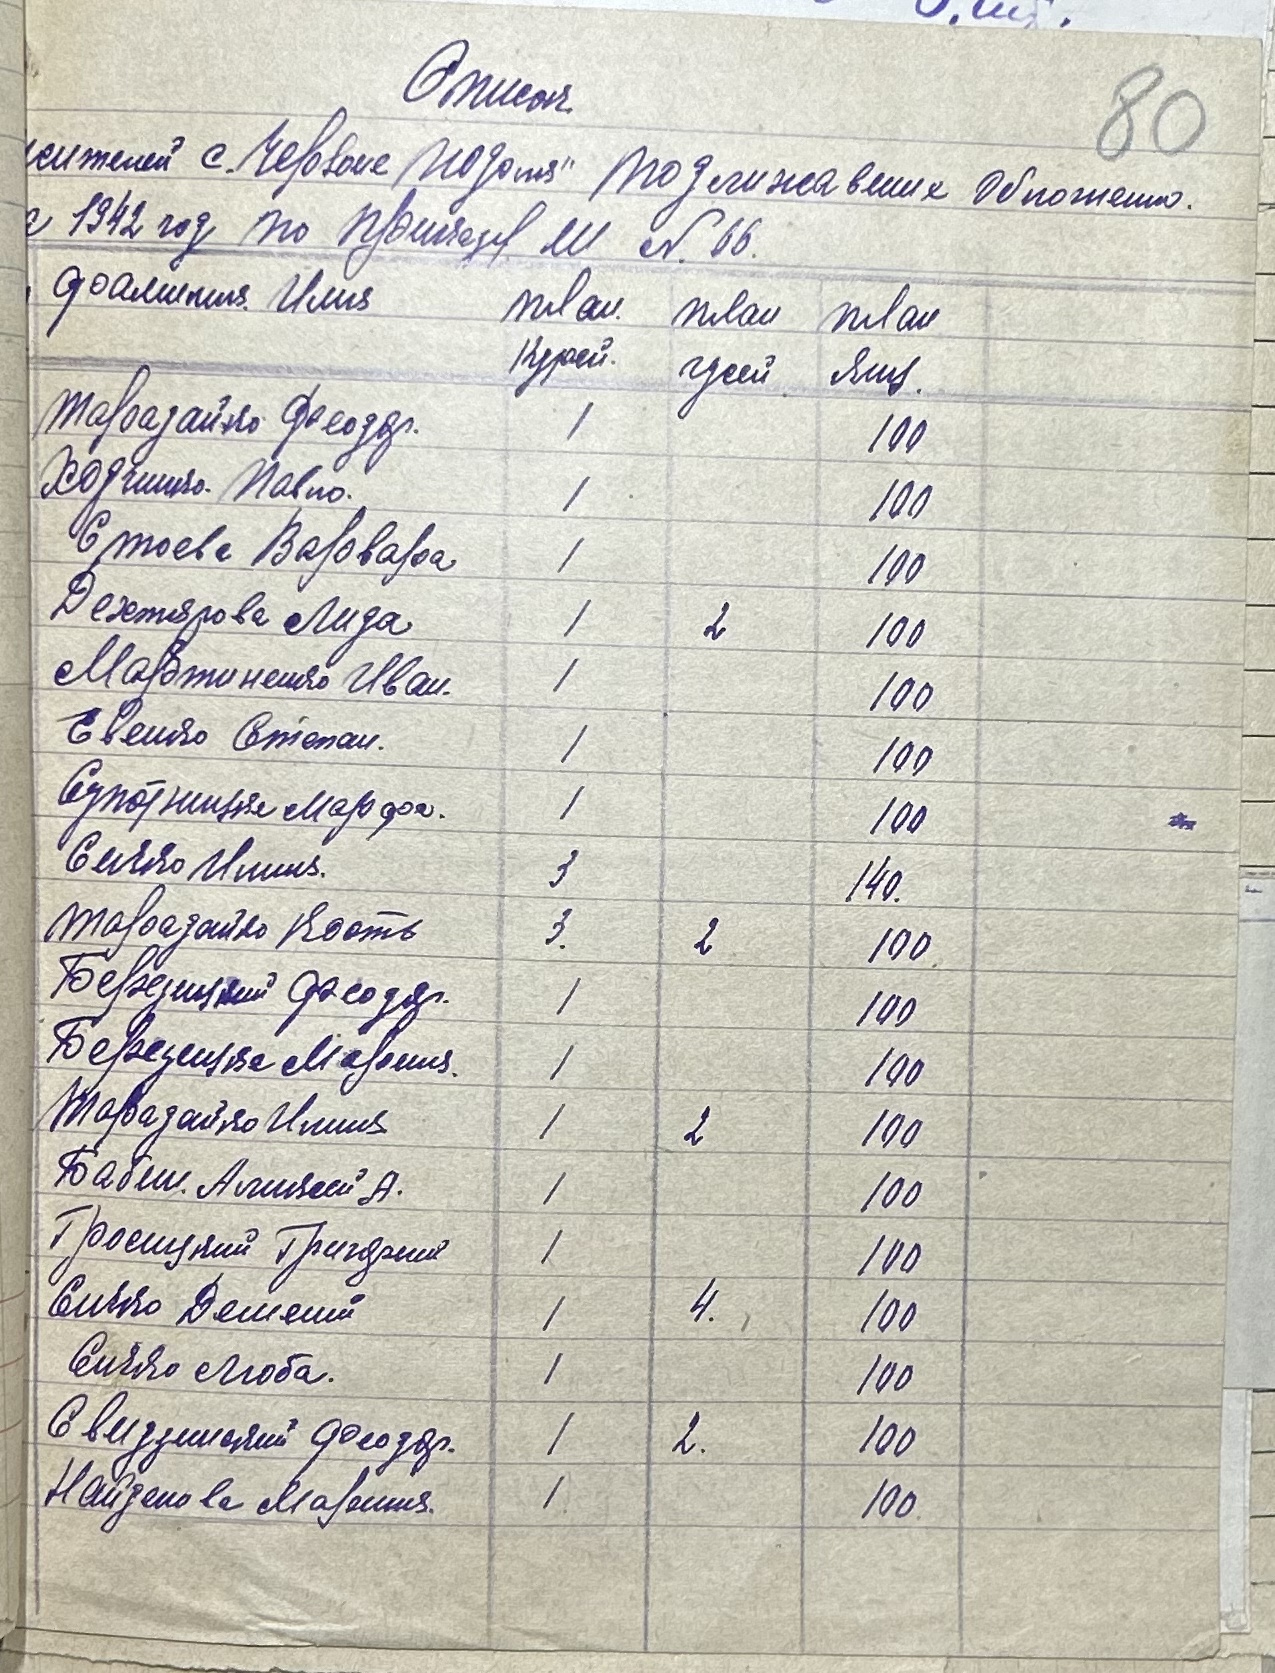 80
Список
жителей с. Червоне Подолля" подлижавших обложению.
1942 год по приказу №. 66.
Фоамилия. Имя план. план план
Курей. гусей Яиц.
Тарадайко Феодор. 1 100
Ходчинко. Павло. 1 100
Стоева Варвара 1 100
Дехтярова Лида 1 2 100
Мартиненко Иван. 1 100
Евенко Степан. 1 100
Марфа. 1 100
Сичко Илия. 3 140.
Тарадайко Кость 3. 2 100
Березицкий Феодор. 1 100
Березицка Мария. 1 100
Тарадайко Илия 1 2 100
Бабин. Аликсей А. 1 100
Гросицкий Григорий 1 100
Сичко 1 4. 100
Сичко Люба. 1 100
Свидзинский Феодор. 1 2. 100
Найденова Мария. 1 100